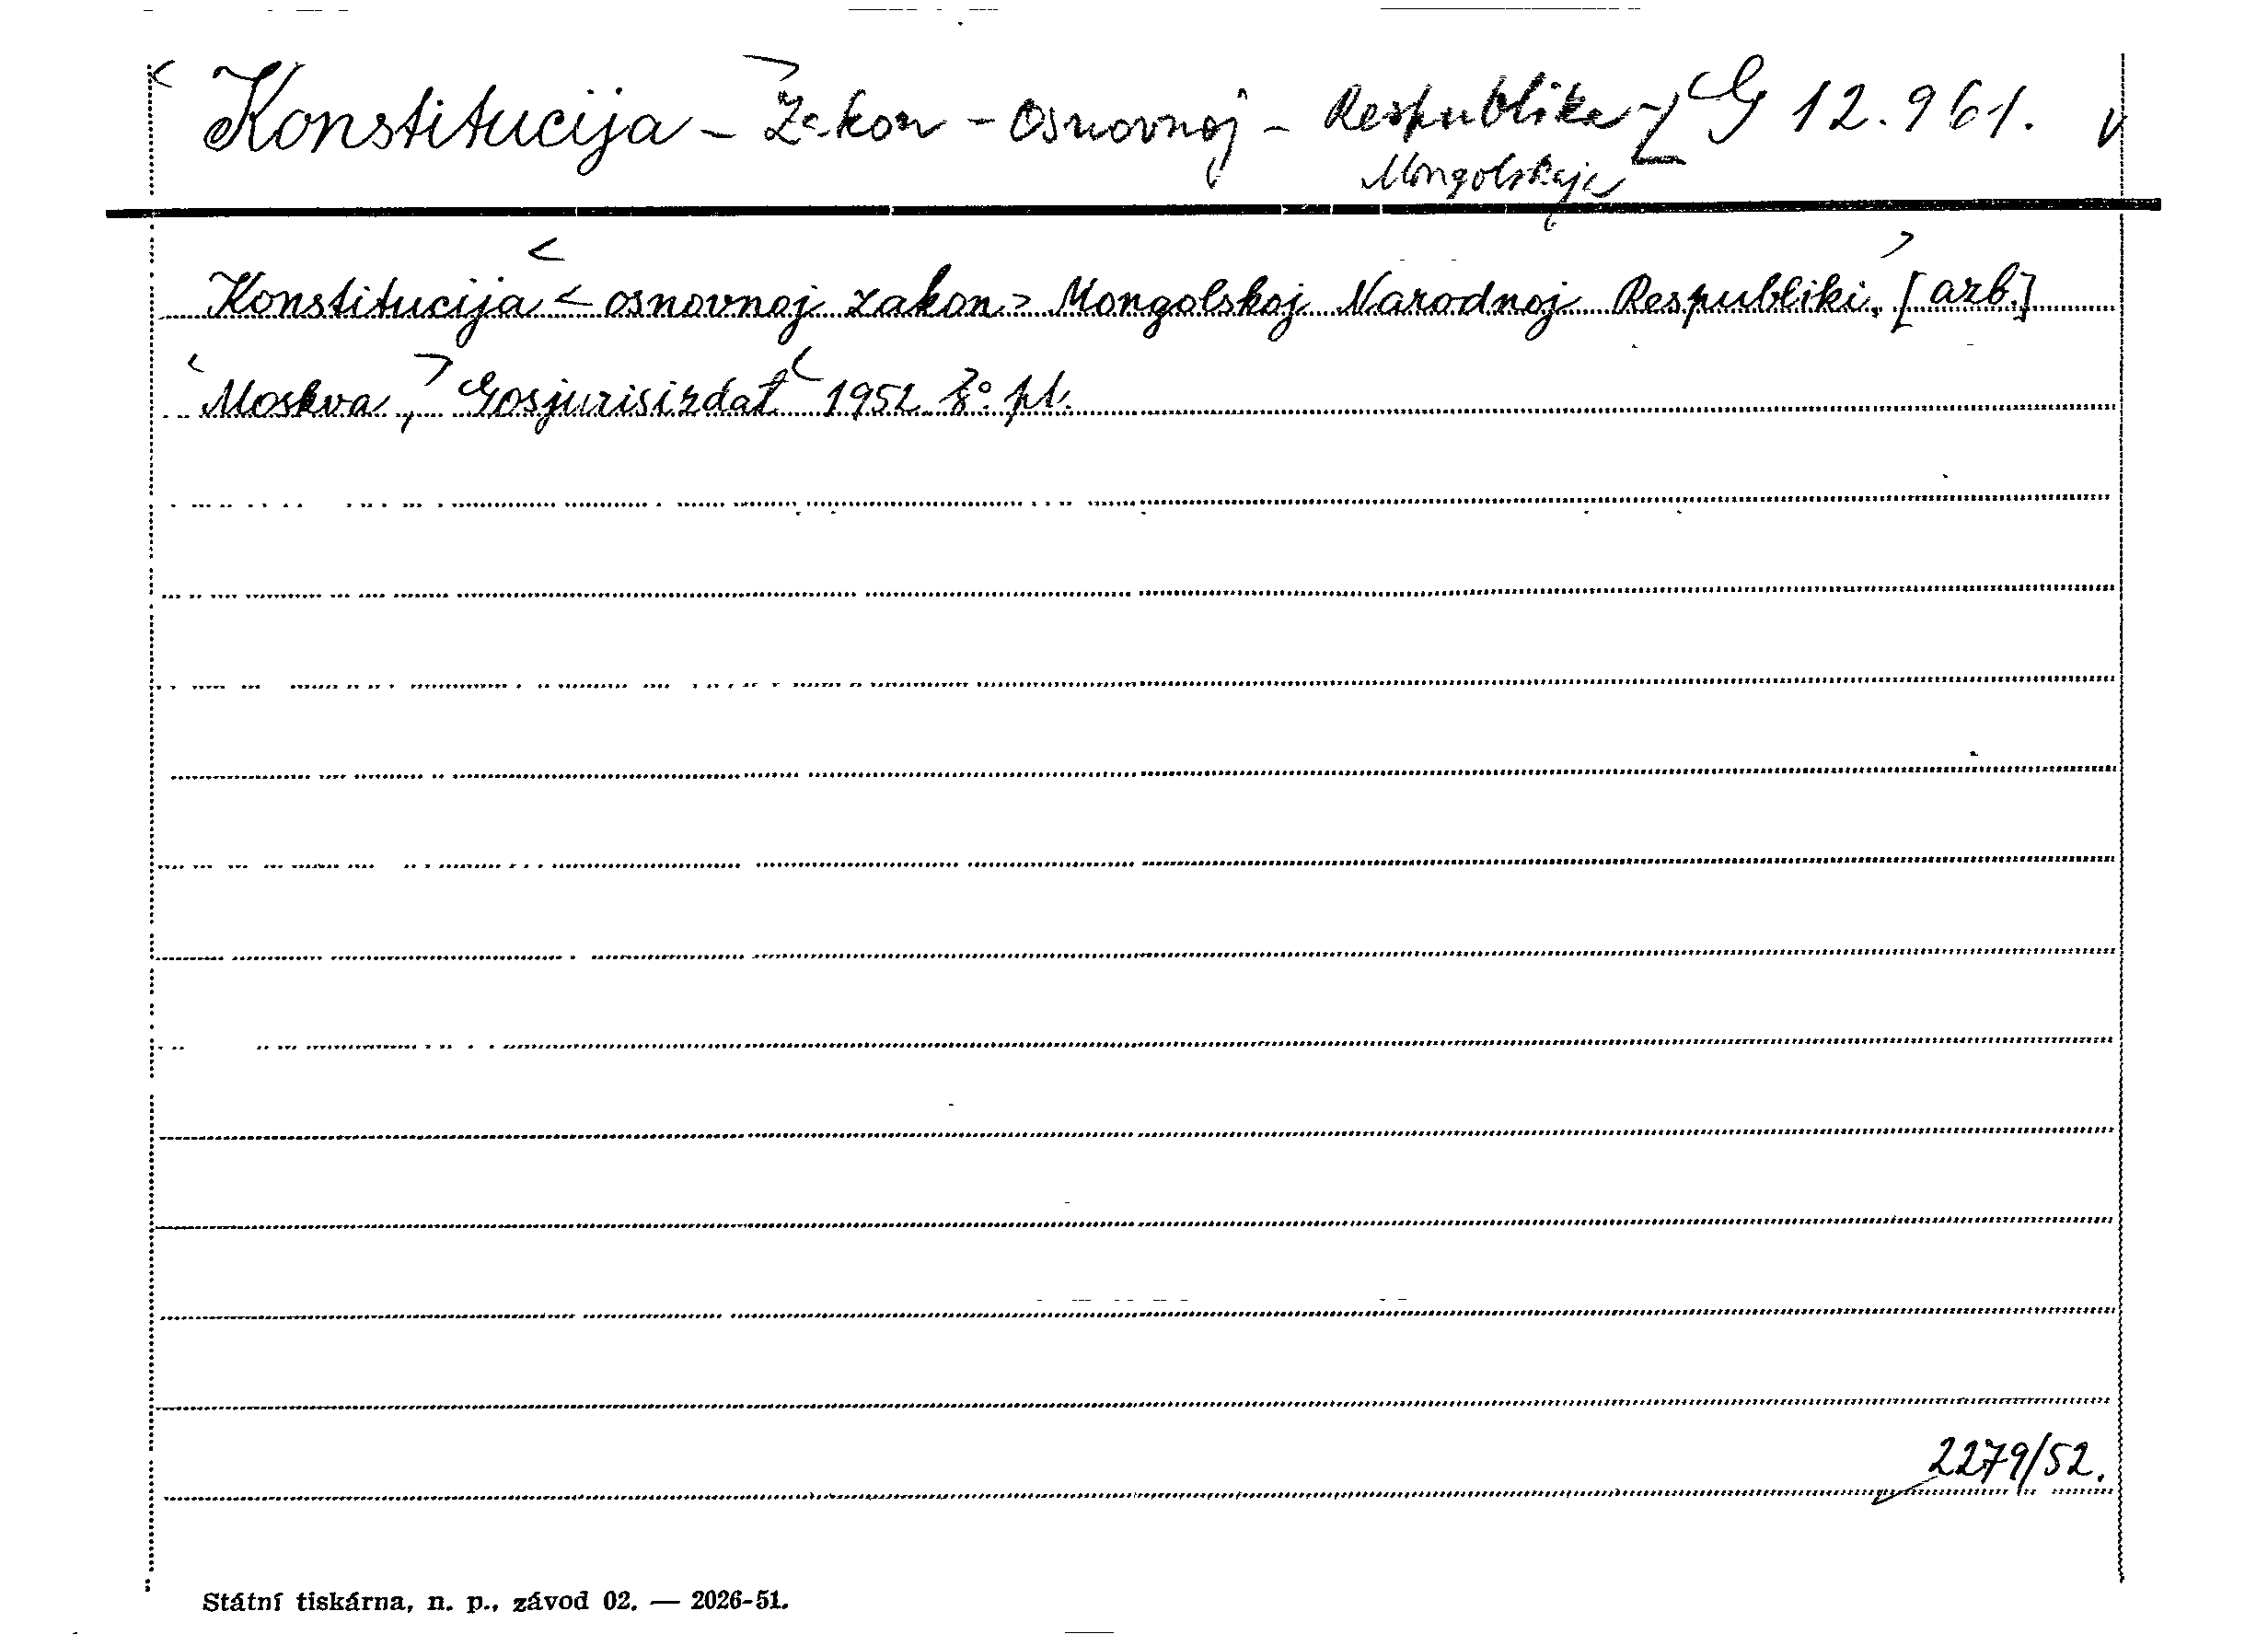 Konstitucija - Zakon - Osnovnoj - Respublika G 12.961.
Mongolskaja
Konstitucija < osnovnoj zakon > Mongolskoj Narodnoj Respubliki, [azb.]
Moskva, Gosjurisizdat 1952 8° pl.
2279/52.
Státní tiskárna, n. p., závod 02. — 2026-51.